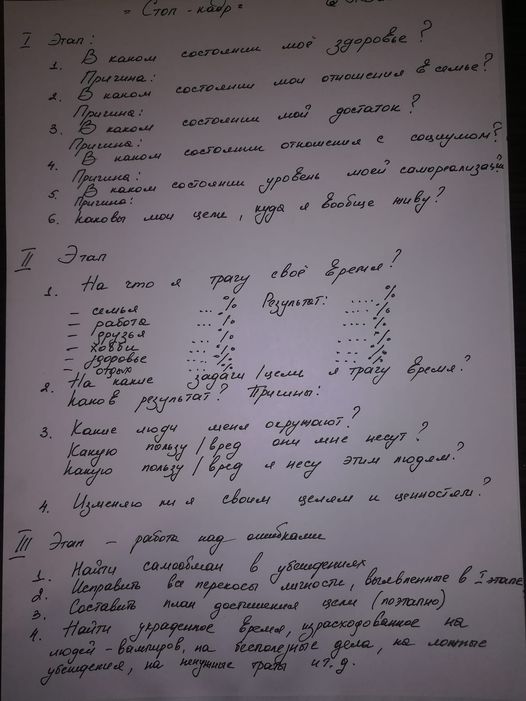 = Стоп - кадр =
I Этап:
1. В каком состоянии моё здоровье?
Причина:
2. В каком состоянии мои отношения в семье?
Причина:
3. В каком состоянии мой достаток?
Причина:
4. В каком состоянии отношения с социумом?
Причина:
5. В каком состоянии уровень моей самореализации
Причина:
6. Каковы мои цели, куда я вообще живу?
II Этап
1. На что я трачу своё время?
– семья ... % Результат: .... %
– работа ... % .... %
– друзья ... % .... %
– хобби ... % .... %
– здоровье ... % .... %
– отдых ... % .... %
2. На какие задачи/цели я трачу время?
Каков результат? Причины:
3. Какие люди меня окружают?
Какую пользу/вред они мне несут?
Какую пользу/вред я несу этим людям?
4. Изменяю ли я своим целям и ценностям?
III Этап – работа над ошибками
1. Найти самообман в убеждениях
2. Исправить все перекосы личности, выявленные в I этапе
3. Составить план достижения цели (поэтапно)
4. Найти украденное время, израсходованное на
людей - вампиров, на бесполезные дела, на ложные
убеждения, на ненужные траты и т. д.